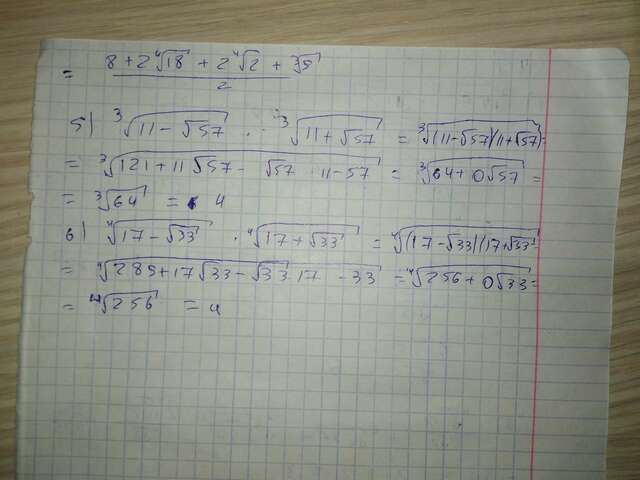 = (8 + 2∜18 + 2∜2 + ∛5) / 2
5) ∛(11 − √57) · ∛(11 + √57) = ∛((11−√57)(11+√57)) =
= ∛(121 + 11√57 − √57 · 11 − 57) = ∛(64 + 0√57) =
= ∛64 = 4
6) ∜(17 − √33) · ∜(17 + √33) = ∜((17 − √33)(17+√33))
= ∜(289 + 17√33 − √33 · 17 − 33) = ∜(256 + 0√33) =
= ∜256 = 4